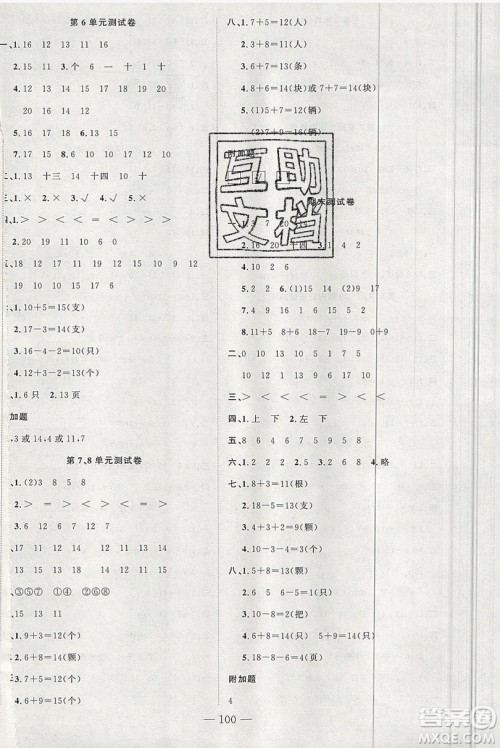 第6单元测试卷
1.16 12 13 11 16
2.15 11 3.个 6 一 十 1 十
4.19 12 13 16 18 20 14
20 16 14
5.17 16 15 18 6.20 7.15
1.13 十三 14 十四 10 十
2.✓ 3.✓ 4.✓
＞ ＜ ＞ ＞ ＞ ＝ ＜
10 11 18 15 18 19 13 13
19 17 10 15 12 16
1.10+5=15(支)
2.14-3-1=10(支)
3.16-4-2=10(只)
1.6只 2.13页
加题
3或14,4或11,7
第7、8单元测试卷
1.(2)3 8 5 8
2.＞ ＝ ＞ ＜ ＜ ＞ ＜ ＝
3.11 13 12 7 12
13 17 11 14 13 12 18
15 14 12 16
③⑤⑦ ①④ ②⑥⑧
1.9+3=12(个)
2.6+8=14(只)
3.10+8=18(个)
4.6+9=15(个)
八、1.7+5=12(人)
2.4+7=11(人)
3.6+7=13(条)
4.6+8=14(块)或7+7=14(块)
5.(1)5+7=12(辆)
(2)7+9=16(辆)
附加题
互助
文档
期末测试卷
1.3 7 20 15
2.16 20 十四 3.1 4 2
4.10 2 6
5.1 2 6.(1)5 15 19
7.9 4 9
8.11+5=16
二、0 10 13 5 10 10
10 12 9 13 19 10
三、＞ ＝ ＞ ＜ ＜ ＜ ＝
四、1.上 下 2.左 下
五、8 2 4 2
六、1.6 2.8 7 2 3.8 4.略
七、1.8+3=11(根)
2.18-5=13(个)
3.6+8=14(颗)
八、1.5+8=13(颗)
2.10-8=2(把)
3.9+5=14(只) 5+9=14(只)
4.10-4=6(页)
5.18-5-6=7(个)
附加题
4
— 100 —
答案圈
MXQE.COM